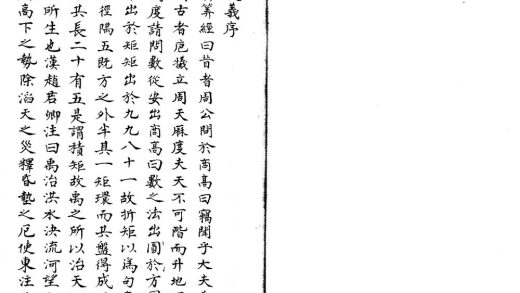 義序
算經曰昔者周公問於商高曰竊聞乎大夫
古者庖犧立周天厤度夫天不可階而升地
度請問數從安出商高曰數之法出圓於方
出於矩矩出於九九八十一故折矩以爲句
徑隅五既方之外半其一矩環而共盤得成
其長二十有五是謂積矩故禹之所以治天
所生也漢趙君卿注曰禹治洪水決流河望
高下之勢除滔天之災釋昏墊之厄使東注